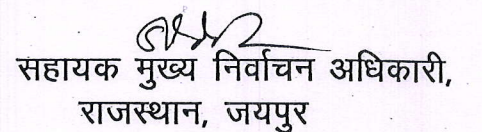 सहायक मुख्य निर्वाचन अधिकारी,
राजस्थान, जयपुर